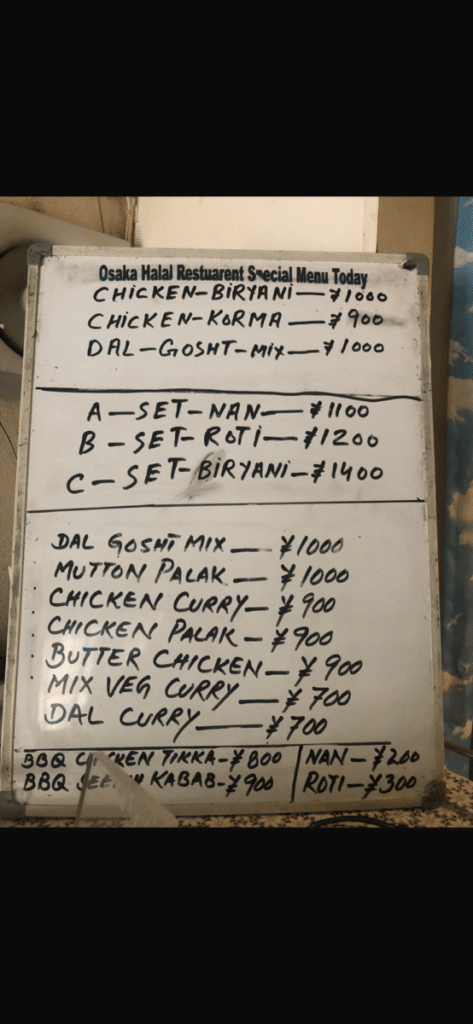 Osaka Halal Restuarent Special Menu Today
CHICKEN-BIRYANI—¥1000
CHICKEN-KORMA—¥900
DAL-GOSHT-MIX—¥1000
A—SET-NAN—¥1100
B-SET-ROTI—¥1200
C-SET-BIRYANI-¥1400
DAL GOSHT MIX—¥1000
MUTTON PALAK—¥1000
CHICKEN CURRY—¥900
CHICKEN PALAK-¥900
BUTTER CHICKEN—¥900
MIX VEG CURRY—¥700
DAL CURRY—¥700
BBQ CHICKEN TIKKA-¥800
BBQ KABAB-¥900
NAN-¥200
ROTI-¥300